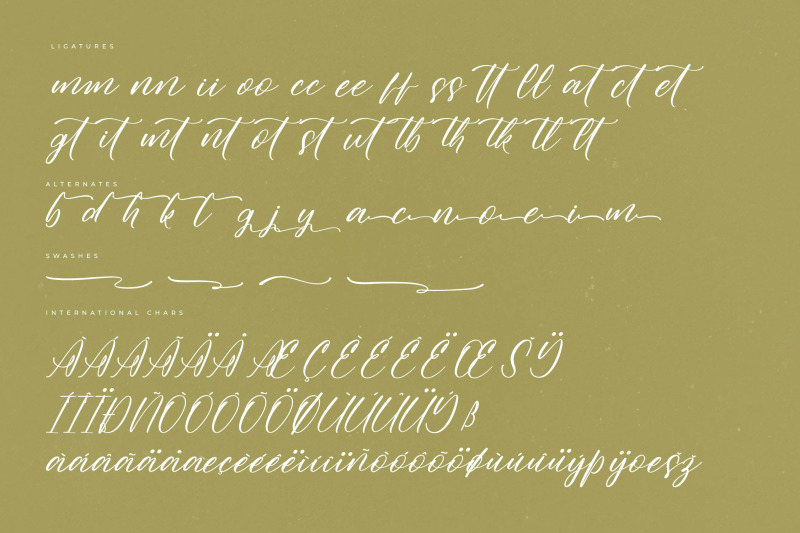 LIGATURES
mm nn ii oo cc ee ff ss tt ll at ct et
gt it mt nt ot st ut tb th tk tl lt
ALTERNATES
b d h k t g j y a c n o e i m
SWASHES
INTERNATIONAL CHARS
ÀÁÂÃÄÅ Æ Ç È É Ê Ë Œ Š Ÿ
ÐÑÒÓÔÕÖØÙÚÛÜÝ ß
àáâãäåæçèéêëìíîïñòóôõöøùúûüýþÿœšž